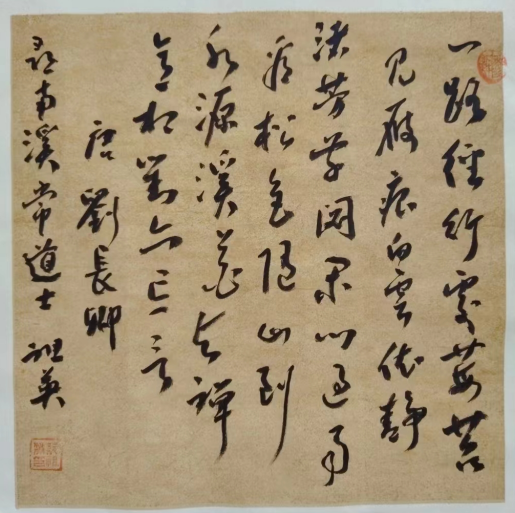 一路經行處莓苔
見履痕白雲依靜
渚芳草閉閑門過雨
看松色隨山到
水源溪花與禪
意相對亦忘言
唐劉長卿
尋南溪常道士 英